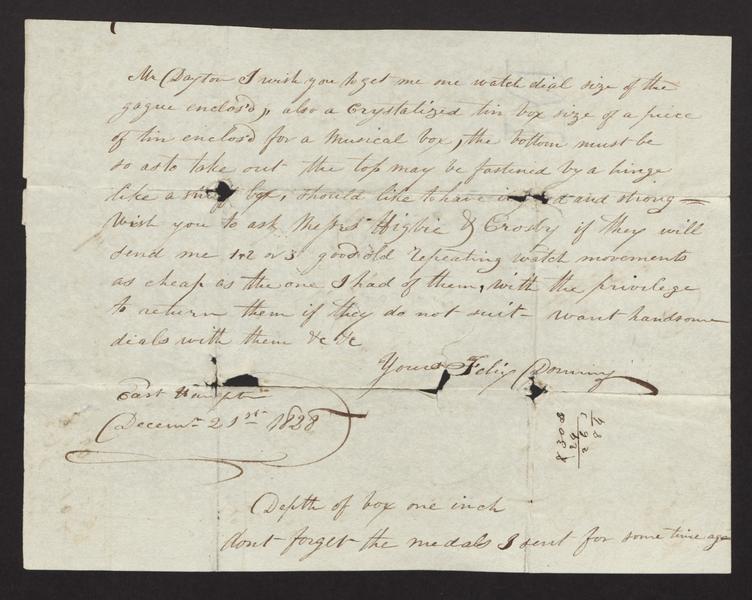 Mr Dayton I wish you to get me one watch dial size of the
gague enclos'd,, also a Crystalized tin box size of a piece
of tin enclos'd for a Musical box, the bottom must be
so as to take out the top may be fastened by a hinge
like a snuff box, should like to have and strong =
Wish you to ask Messrs Higbie & Crosby if they will
send me 1 or 2 or 3 good old repeating watch movements
as cheap as the one I had of them, with the privilege
to return them if they do not suit - want handsome
dials with them &c &c
Yours Felix Dominy
East Hampton
Decemr 21st 1828
Depth of box one inch
dont forget the medals I sent for some time ago